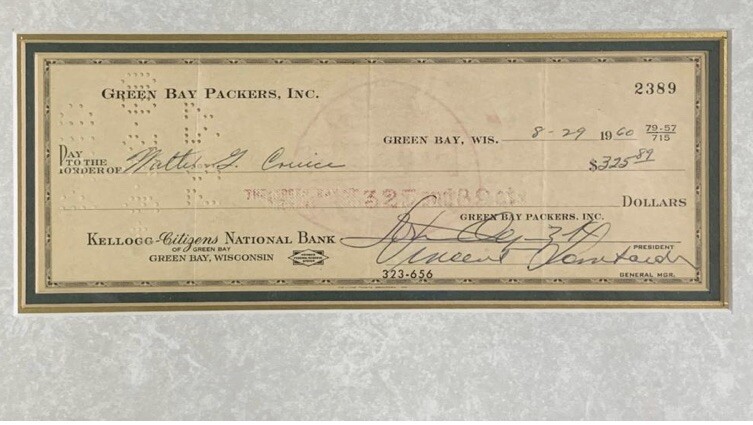 GREEN BAY PACKERS, INC. 2389
GREEN BAY, WIS. 8-29 1960 79-57
715
PAY
TO THE
ORDER OF Walter G. $325 89
DOLLARS
GREEN BAY PACKERS, INC.
KELLOGG-Citizens NATIONAL BANK
OF GREEN BAY
GREEN BAY, WISCONSIN
PRESIDENT
Vincent Lombardi
323-656
GENERAL MGR.